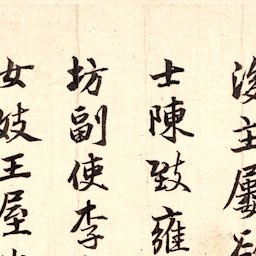 後主屬
士陳致雍
坊副使李
女妓王屋